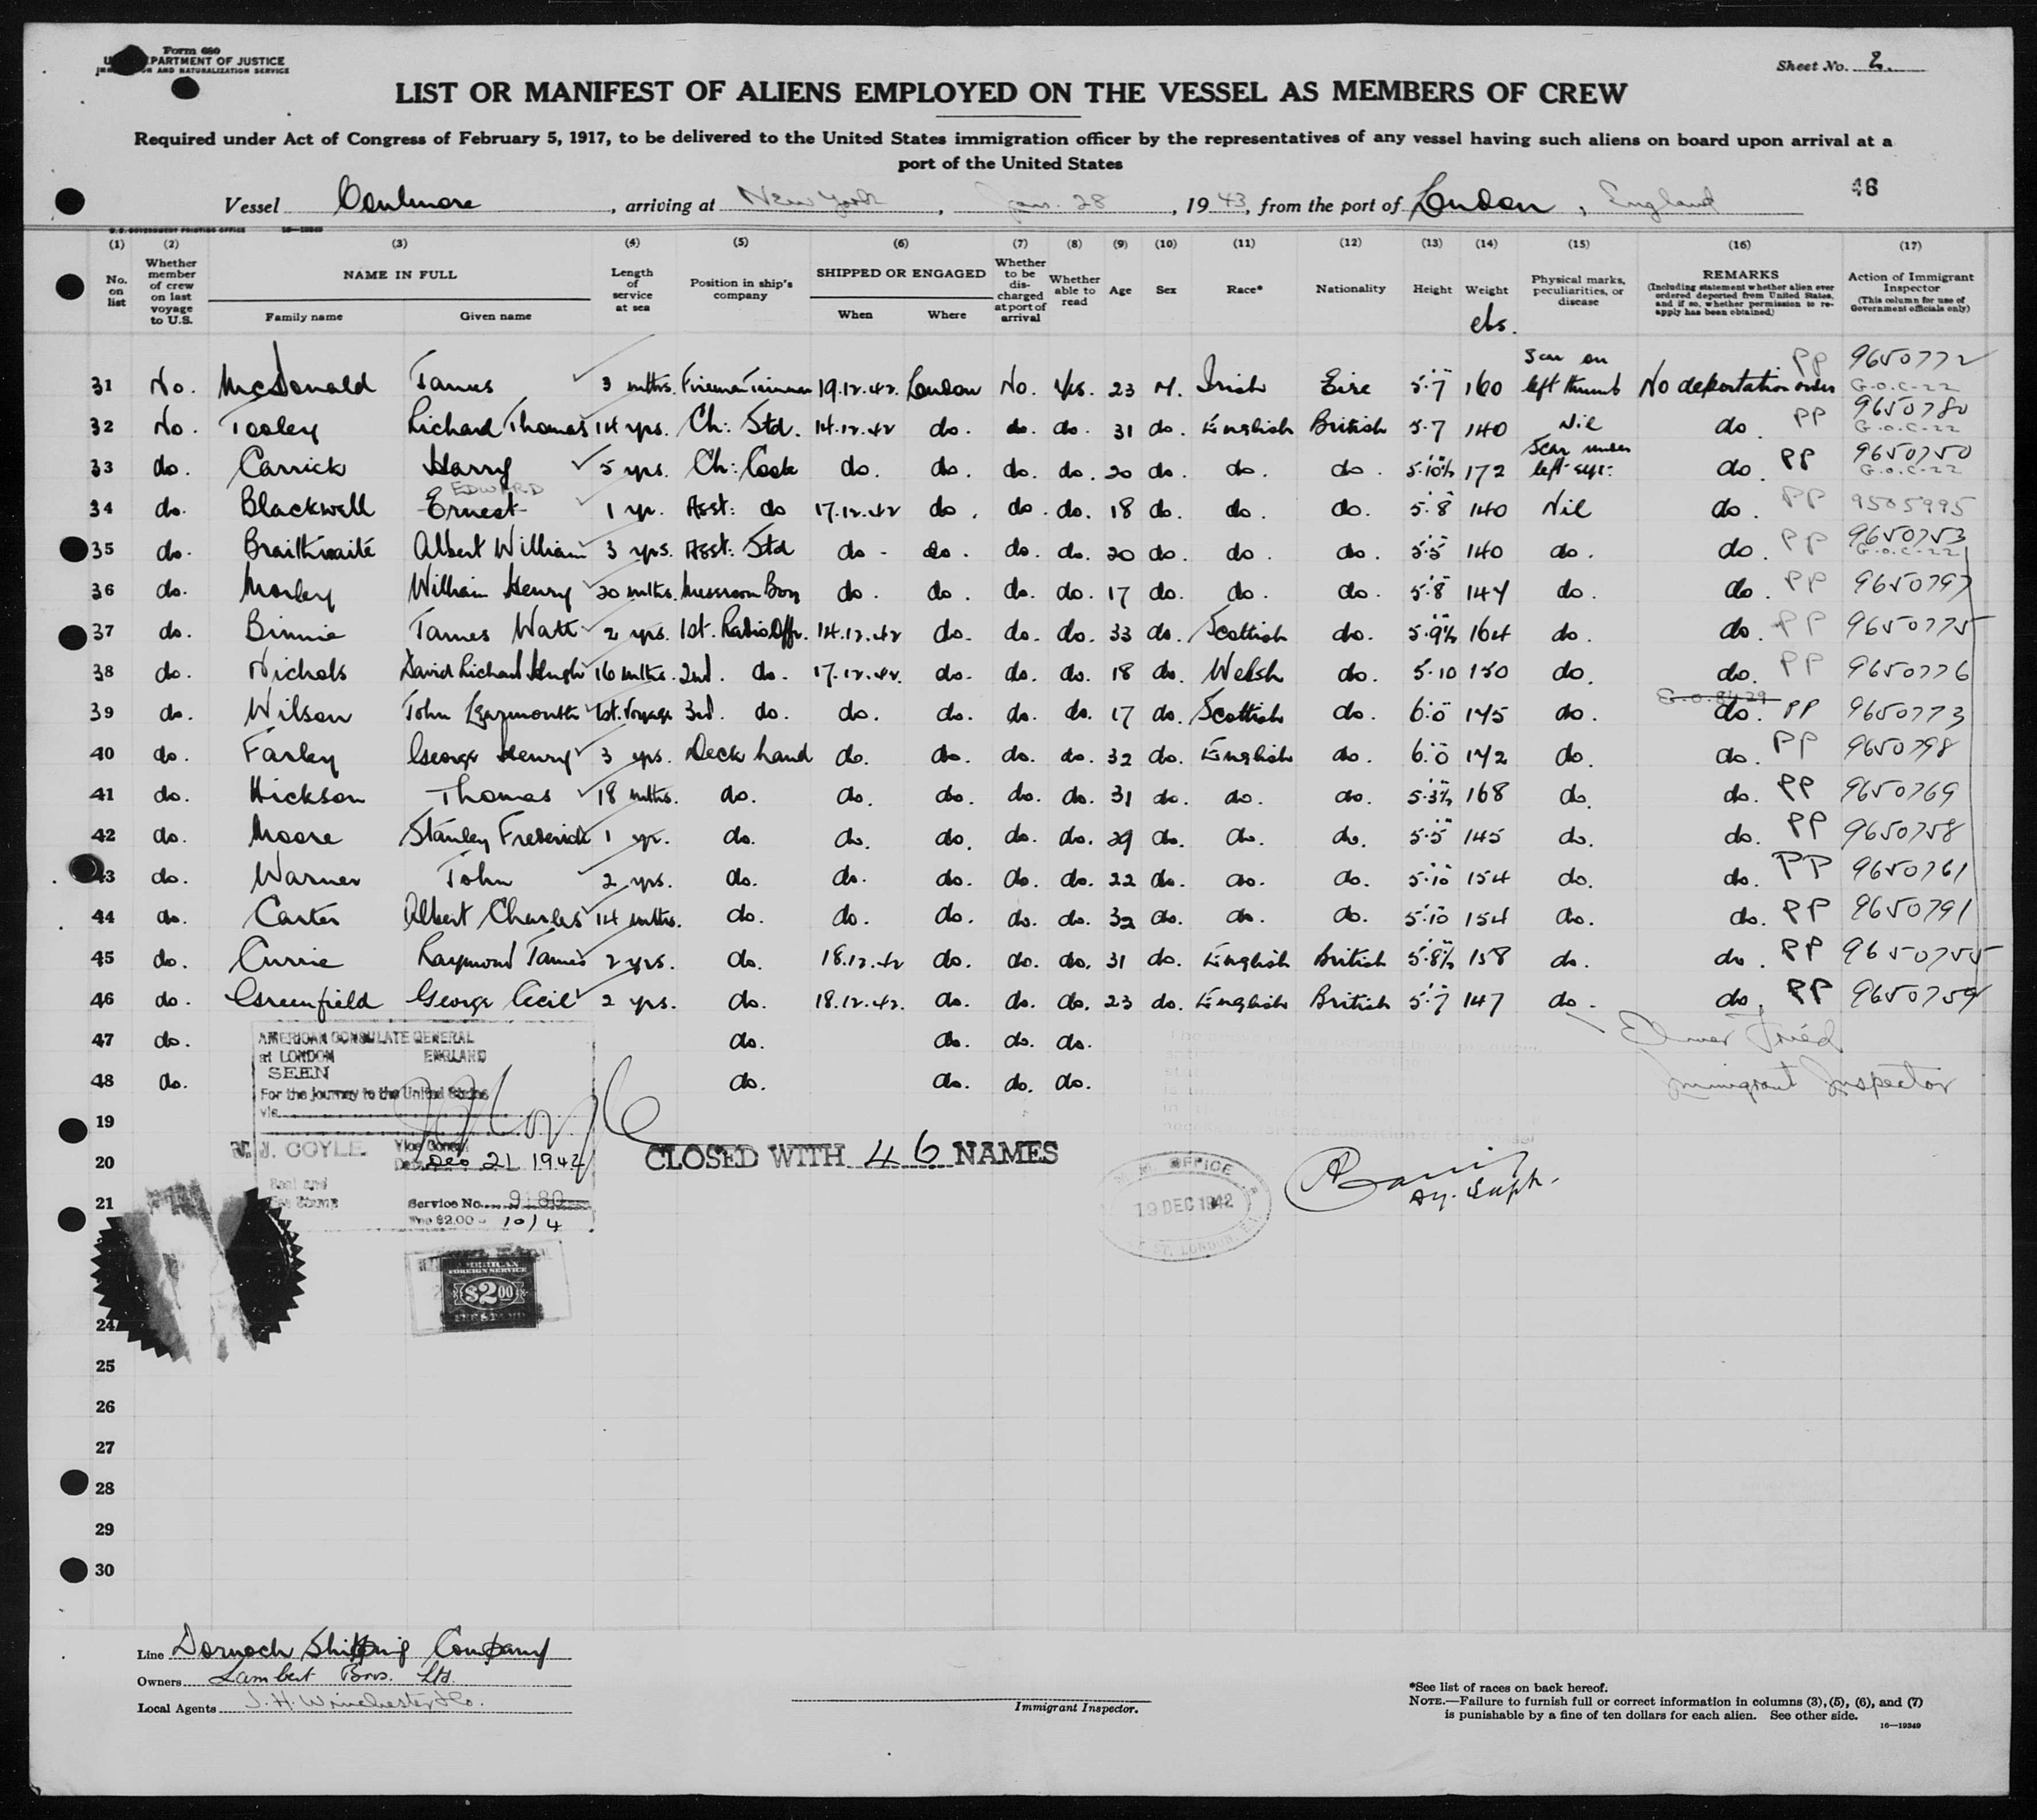 Form 680
U. S. DEPARTMENT OF JUSTICE
IMMIGRATION AND NATURALIZATION SERVICE
Sheet No. 2.
LIST OR MANIFEST OF ALIENS EMPLOYED ON THE VESSEL AS MEMBERS OF CREW
Required under Act of Congress of February 5, 1917, to be delivered to the United States immigration officer by the representatives of any vessel having such aliens on board upon arrival at a
port of the United States
46
Vessel Coulmore, arriving at New York, Jan. 28, 1943, from the port of London, England
U. S. GOVERNMENT PRINTING OFFICE 16—19349
(1) (2) (3) (4) (5) (6) (7) (8) (9) (10) (11) (12) (13) (14) (15) (16) (17)
No. on list
Whether member of crew on last voyage to U.S.
NAME IN FULL
Family name Given name
Length of service at sea
Position in ship's company
SHIPPED OR ENGAGED
When Where
Whether to be discharged at port of arrival
Whether able to read
Age
Sex
Race*
Nationality
Height
Weight
lbs.
Physical marks, peculiarities, or disease
REMARKS
(Including statement whether alien ever ordered deported from United States, and if so, whether permission to reapply has been obtained)
Action of Immigrant Inspector
(This column for use of Government officials only)
31 No. McDonald James 3 mths. Fireman Trimmer 19.12.42. London No. Yes. 23 M. Irish Eire 5.7 160 Scar on left thumb No deportation order PP 9650772 G.O.C-22
32 No. Tooley Richard Thomas 14 yrs. Ch: Std. 14.12.42 do. do. do. 31 do. English British 5.7 140 Nil do. PP 9650780 G.O.C-22
33 do. Carrick Harry 5 yrs. Ch: Cook do. do. do. do. 20 do. do. do. 5.10½ 172 Scar under left eye: do. PP 9650750 G.O.C-22
34 do. Blackwell Ernest EDWARD 1 yr. Asst: do 17.12.42 do. do. do. 18 do. do. do. 5.8 140 Nil do. PP 9505995
35 do. Braithwaite Albert William 3 yrs. Asst: Std do. do. do. do. 20 do. do. do. 5.5 140 do. do. PP 9650753 G.O.C-22
36 do. Morley William Henry 20 mths. Messroom Boy do. do. do. do. 17 do. do. do. 5.8 144 do. do. PP 9650797
37 do. Binnie James Watt 2 yrs. 1st. Radio Offr. 14.12.42 do. do. do. 33 do. Scottish do. 5.9½ 164 do. do. PP 9650775
38 do. Nichols David Richard Hugh 16 mths. 2nd. do. 17.12.42. do. do. do. 18 do. Welsh do. 5.10 150 do. do. PP 9650776
39 do. Wilson John 1st. Voyage 3rd. do. do. do. do. do. 17 do. Scottish do. 6.0 145 do. do. PP 9650773
40 do. Farley George Henry 3 yrs. Deck hand do. do. do. do. 32 do. English do. 6.0 142 do. do. PP 9650798
41 do. Hickson Thomas 18 mths. do. do. do. do. do. 31 do. do. do. 5.3½ 168 do. do. PP 9650769
42 do. Moore Stanley Frederick 1 yr. do. do. do. do. do. 29 do. do. do. 5.5 145 do. do. PP 9650758
43 do. Warner John 2 yrs. do. do. do. do. do. 22 do. do. do. 5.10 154 do. do. PP 9650761
44 do. Carter Albert Charles 14 mths. do. do. do. do. do. 32 do. do. do. 5.10 154 do. do. PP 9650791
45 do. Currie Raymond James 2 yrs. do. 18.12.42 do. do. do. 31 do. English British 5.8½ 158 do. do. PP 9650755
46 do. Greenfield George Cecil 2 yrs. do. 18.12.42. do. do. do. 23 do. English British 5.7 147 do. do. PP 9650759
47 do. do. do. do. do.
48 do. do. do. do. do.
Elmer Fried
Immigrant Inspector
AMERICAN CONSULATE GENERAL
at LONDON ENGLAND
SEEN
For the journey to the United States
via
J. COYLE Vice Consul
Date Dec 21 1942
Seal and
Fee Stamp
Service No. 9180
Fee $2.00 - 10/4
CLOSED WITH 46 NAMES
M. M. OFFICE
19 DEC 1942
ST. LONDON, E.
Dy. Supt.
AMERICAN
FOREIGN SERVICE
$2.00
FEE STAMP
19
20
21
24
25
26
27
28
29
30
Line Dornoch Shipping Company
Owners Lambert Bros. Ltd.
Local Agents J. H. Winchester & Co.
Immigrant Inspector.
*See list of races on back hereof.
NOTE.—Failure to furnish full or correct information in columns (3), (5), (6), and (7)
is punishable by a fine of ten dollars for each alien. See other side.
16—19349